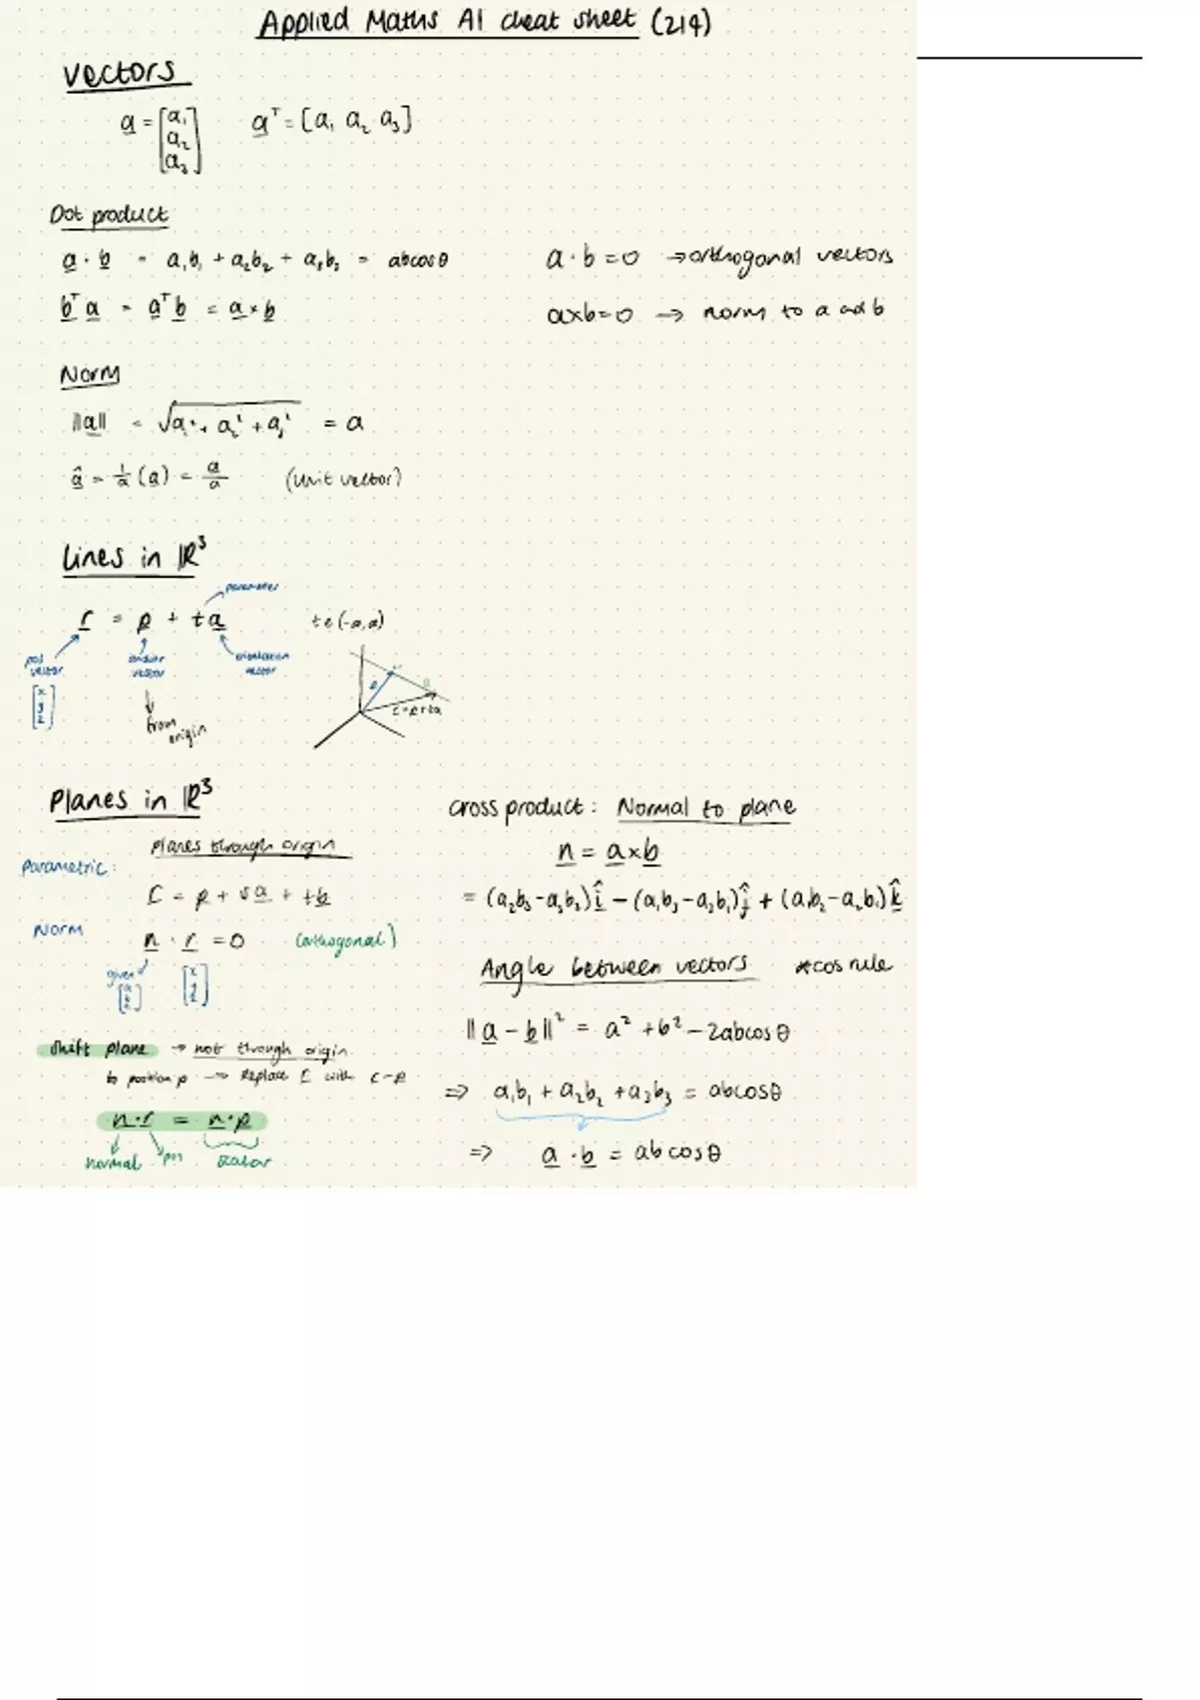 Applied Maths A1 cheat sheet (214)
Vectors
a = [a₁ a₂ a₃] aᵀ = [a₁ a₂ a₃]
Dot product
a · b = a₁b₁ + a₂b₂ + a₃b₃ = abcosθ
a · b = 0 → orthogonal vectors
bᵀa = aᵀb = a × b
a×b = 0 → norm to a and b
Norm
||a|| = √a₁² + a₂² + a₃² = a
â = 1/a (a) = a/a (unit vector)
Lines in ℝ³
parameter
r = p + ta
pos vector
vector
orientation vector
[x y z]
from origin
p
r = p + ta
Planes in ℝ³
planes through origin
Parametric:
r = p + sa + tb
Norm
n · r = 0 (orthogonal)
given
[a b c] [x y z]
Shift plane → not through origin
to position p → Replace r with r - p
n·r = n·p
normal pos scalar
cross product: Normal to plane
n = a×b
= (a₂b₃ - a₃b₂)î - (a₁b₃ - a₃b₁)ĵ + (a₁b₂ - a₂b₁)k̂
Angle between vectors *cos rule
||a - b||² = a² + b² - 2abcosθ
⇒ a₁b₁ + a₂b₂ + a₃b₃ = abcosθ
⇒ a · b = abcosθ